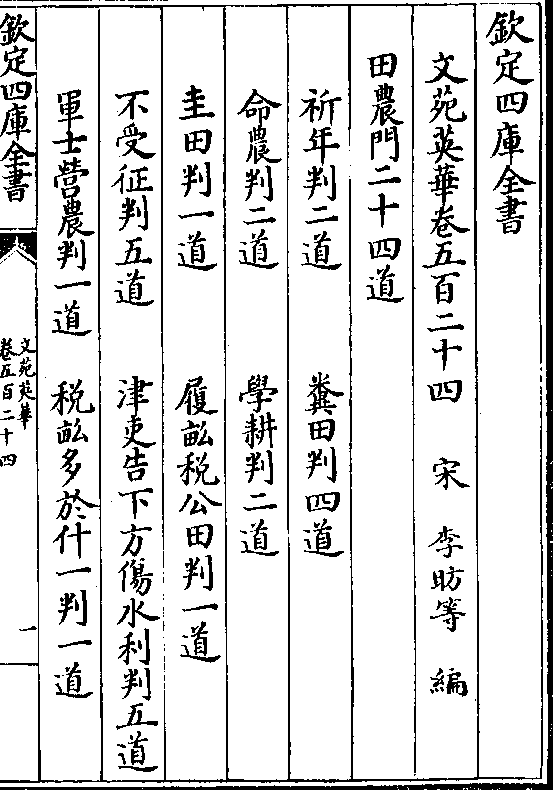 欽定四庫全書
文苑英華卷五百二十四 宋 李昉等 編
田農門二十四道
祈年判二道 糞田判四道
命農判二道 學耕判二道
圭田判一道 履畝税公田判一道
不受征判五道 津吏告下方傷水利判五道
軍士營農判一道 税畝多於什一判一道
欽定四庫全書
文苑英華
卷五百二十四
一